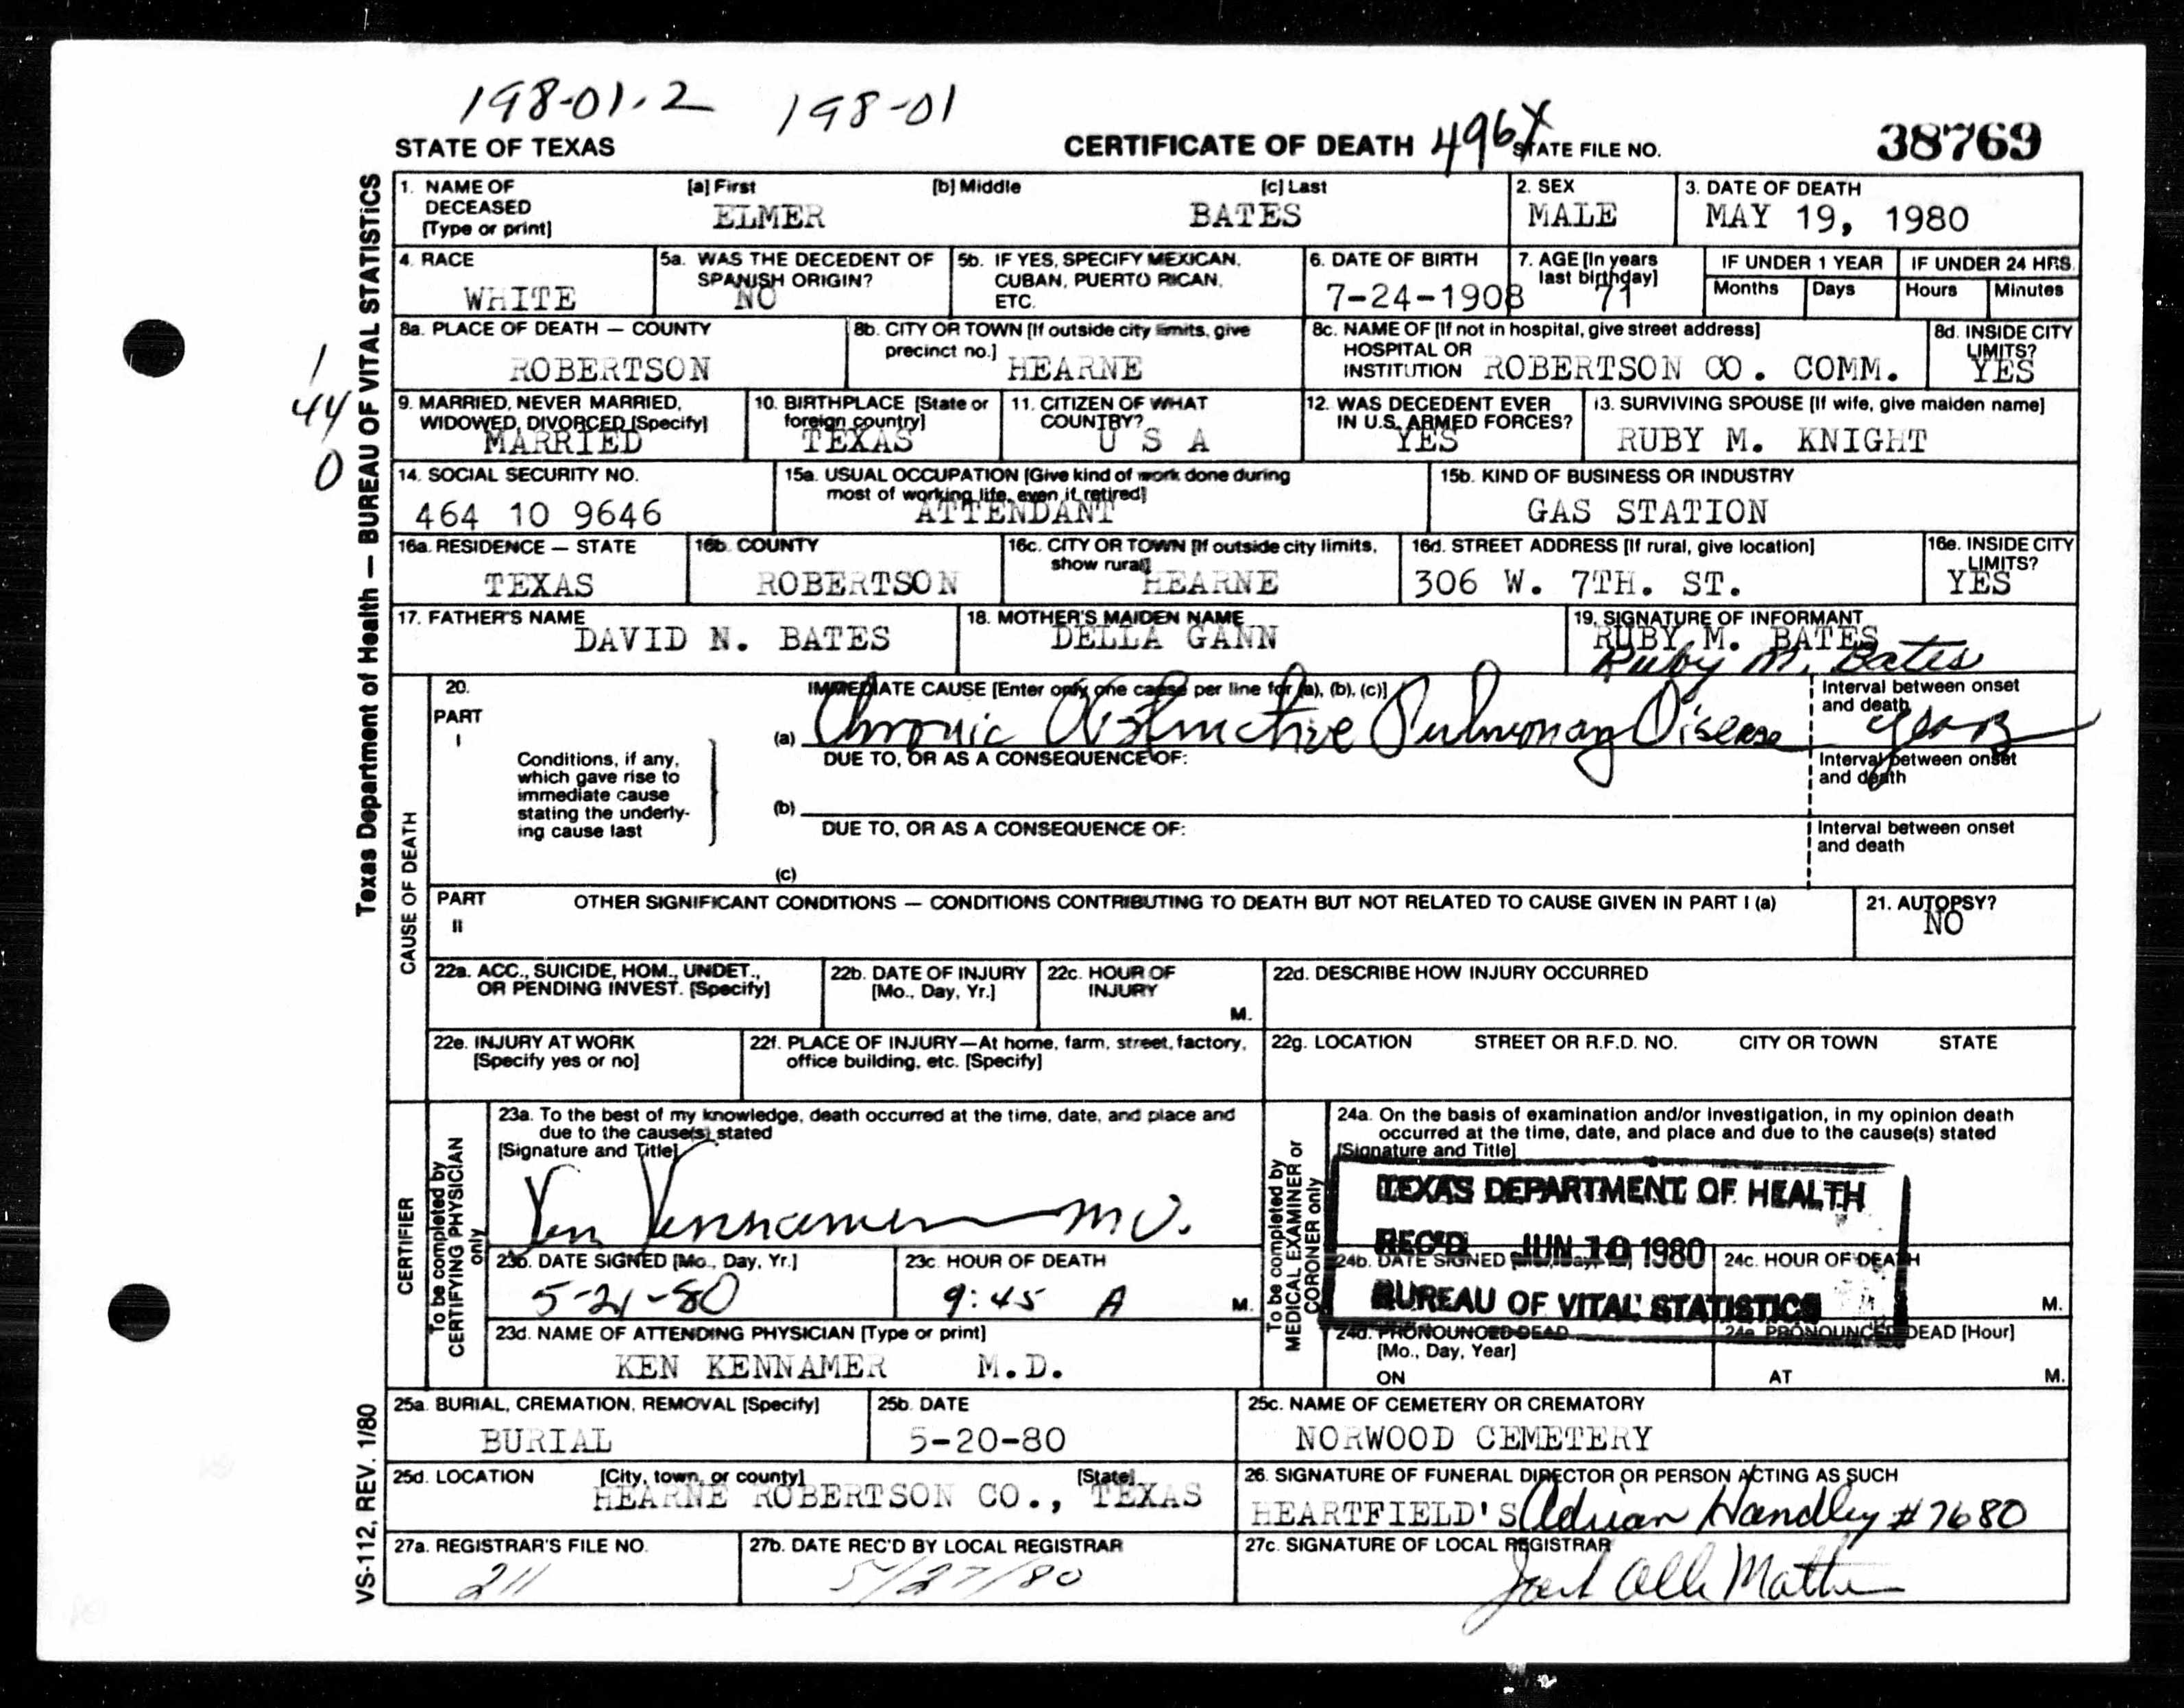 198-01.2 198-01
STATE OF TEXAS CERTIFICATE OF DEATH 496X STATE FILE NO. 38769
Texas Department of Health — BUREAU OF VITAL STATISTICS
VS-112, REV. 1/80
1
44
0
1. NAME OF DECEASED [Type or print] [a] First [b] Middle [c] Last 2. SEX 3. DATE OF DEATH
ELMER BATES MALE MAY 19, 1980
4. RACE 5a. WAS THE DECEDENT OF SPANISH ORIGIN? 5b. IF YES, SPECIFY MEXICAN, CUBAN, PUERTO RICAN, ETC. 6. DATE OF BIRTH 7. AGE [In years last birthday] IF UNDER 1 YEAR IF UNDER 24 HRS.
Months Days Hours Minutes
WHITE NO 7-24-1908 71
8a. PLACE OF DEATH — COUNTY 8b. CITY OR TOWN [If outside city limits, give precinct no.] 8c. NAME OF [If not in hospital, give street address] HOSPITAL OR INSTITUTION 8d. INSIDE CITY LIMITS?
ROBERTSON HEARNE ROBERTSON CO. COMM. YES
9. MARRIED, NEVER MARRIED, WIDOWED, DIVORCED [Specify] 10. BIRTHPLACE [State or foreign country] 11. CITIZEN OF WHAT COUNTRY? 12. WAS DECEDENT EVER IN U.S. ARMED FORCES? 13. SURVIVING SPOUSE [If wife, give maiden name]
MARRIED TEXAS U S A YES RUBY M. KNIGHT
14. SOCIAL SECURITY NO. 15a. USUAL OCCUPATION [Give kind of work done during most of working life, even if retired] 15b. KIND OF BUSINESS OR INDUSTRY
464 10 9646 ATTENDANT GAS STATION
16a. RESIDENCE — STATE 16b. COUNTY 16c. CITY OR TOWN [If outside city limits, show rural] 16d. STREET ADDRESS [If rural, give location] 16e. INSIDE CITY LIMITS?
TEXAS ROBERTSON HEARNE 306 W. 7TH. ST. YES
17. FATHER'S NAME 18. MOTHER'S MAIDEN NAME 19. SIGNATURE OF INFORMANT
DAVID N. BATES DELLA GANN RUBY M. BATES
Ruby M. Bates
CAUSE OF DEATH
20. IMMEDIATE CAUSE [Enter only one cause per line for (a), (b), (c)] Interval between onset and death
PART I
(a) Chronic Obstructive Pulmonary Disease years
Conditions, if any, which gave rise to immediate cause stating the underlying cause last
DUE TO, OR AS A CONSEQUENCE OF: Interval between onset and death
(b)
DUE TO, OR AS A CONSEQUENCE OF: Interval between onset and death
(c)
PART II OTHER SIGNIFICANT CONDITIONS — CONDITIONS CONTRIBUTING TO DEATH BUT NOT RELATED TO CAUSE GIVEN IN PART I (a) 21. AUTOPSY?
NO
22a. ACC., SUICIDE, HOM., UNDET., OR PENDING INVEST. [Specify] 22b. DATE OF INJURY [Mo., Day, Yr.] 22c. HOUR OF INJURY M. 22d. DESCRIBE HOW INJURY OCCURRED
22e. INJURY AT WORK [Specify yes or no] 22f. PLACE OF INJURY—At home, farm, street, factory, office building, etc. [Specify] 22g. LOCATION STREET OR R.F.D. NO. CITY OR TOWN STATE
CERTIFIER
To be completed by CERTIFYING PHYSICIAN only
23a. To the best of my knowledge, death occurred at the time, date, and place and due to the cause(s) stated
[Signature and Title]
Ken Kennamer MD.
23b. DATE SIGNED [Mo., Day, Yr.] 23c. HOUR OF DEATH
5-21-80 9:45 A M.
23d. NAME OF ATTENDING PHYSICIAN [Type or print]
KEN KENNAMER M.D.
To be completed by MEDICAL EXAMINER or CORONER only
24a. On the basis of examination and/or investigation, in my opinion death occurred at the time, date, and place and due to the cause(s) stated
[Signature and Title]
TEXAS DEPARTMENT OF HEALTH
REC'D JUN 10 1980
BUREAU OF VITAL STATISTICS
24b. DATE SIGNED 24c. HOUR OF DEATH M.
24d. PRONOUNCED DEAD [Mo., Day, Year] 24e. PRONOUNCED DEAD [Hour]
ON AT M.
25a. BURIAL, CREMATION, REMOVAL [Specify] 25b. DATE 25c. NAME OF CEMETERY OR CREMATORY
BURIAL 5-20-80 NORWOOD CEMETERY
25d. LOCATION [City, town, or county] [State] 26. SIGNATURE OF FUNERAL DIRECTOR OR PERSON ACTING AS SUCH
HEARNE ROBERTSON CO., TEXAS HEARTFIELD'S Adrian Handley #7680
27a. REGISTRAR'S FILE NO. 27b. DATE REC'D BY LOCAL REGISTRAR 27c. SIGNATURE OF LOCAL REGISTRAR
211 5/27/80